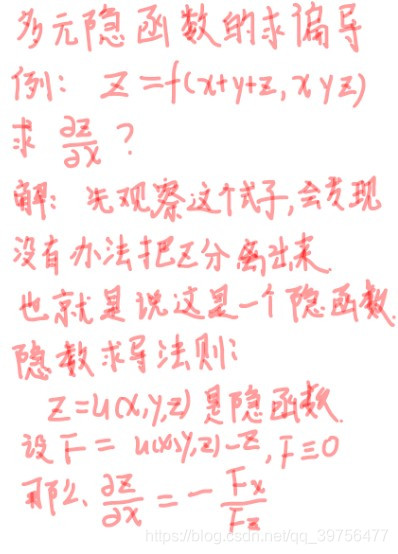 多元隐函数的求偏导
例: z=f(x+y+z, xyz)
求 ∂z/∂x ?
解: 先观察这个式子,会发现
没有办法把z分离出来.
也就是说这是一个隐函数.
隐数求导法则:
z=u(x,y,z) 是隐函数.
设 F = u(x,y,z)-z, F≡0
那么 ∂z/∂x = - Fx/Fz
https://blog.csdn.net/qq_39756477